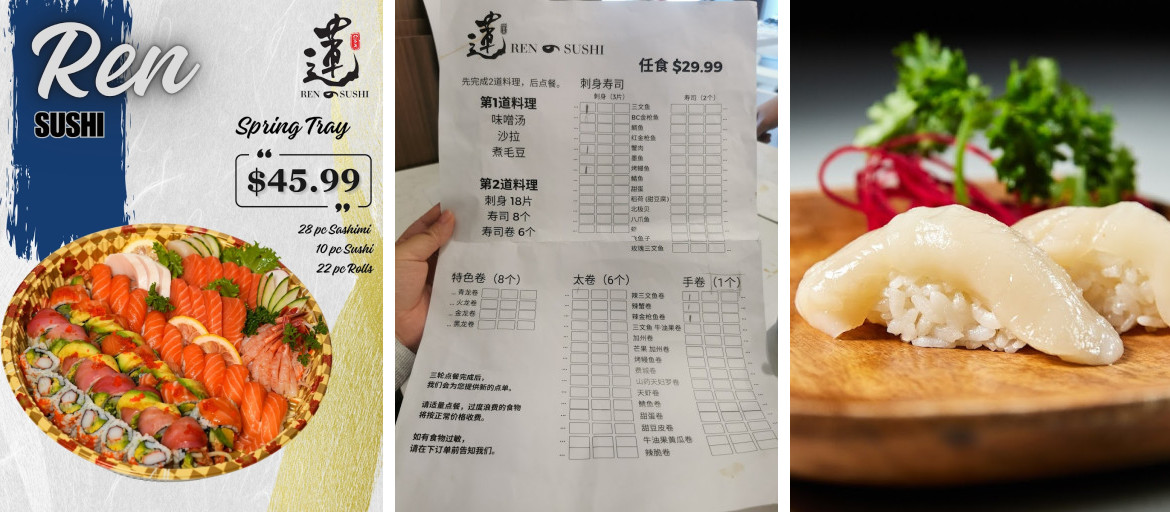 Ren
SUSHI
蓮
REN SUSHI
Spring Tray
“
$45.99
”
28 pc Sashimi
10 pc Sushi
22 pc Rolls
蓮
REN SUSHI
任食 $29.99
先完成2道料理，后点餐。
第1道料理
味噌汤
沙拉
煮毛豆
第2道料理
刺身 18片
寿司 8个
寿司卷 6个
刺身寿司
刺身（3片）
寿司（2个）
三文鱼
BC金枪鱼
鲷鱼
红金枪鱼
蟹肉
墨鱼
烤鳗鱼
鲭鱼
甜蛋
稻荷 (甜豆菜)
北极贝
八爪鱼
虾
飞鱼子
玫瑰三文鱼
特色卷（8个）
青龙卷
火龙卷
金龙卷
黑龙卷
太卷（6个）
手卷（1个）
辣三文鱼卷
辣蟹卷
辣金枪鱼卷
三文鱼 牛油果卷
加州卷
芒果 加州卷
烤鳗鱼卷
费城卷
山药天妇罗卷
天虾卷
鲭鱼卷
甜蛋卷
甜豆皮卷
牛油果黄瓜卷
辣脆卷
三轮点餐完成后，
我们会为您提供新的点单。
请适量点餐，过度浪费的食物
将按正常价格收费。
如有食物过敏，
请在下订单前告知我们。